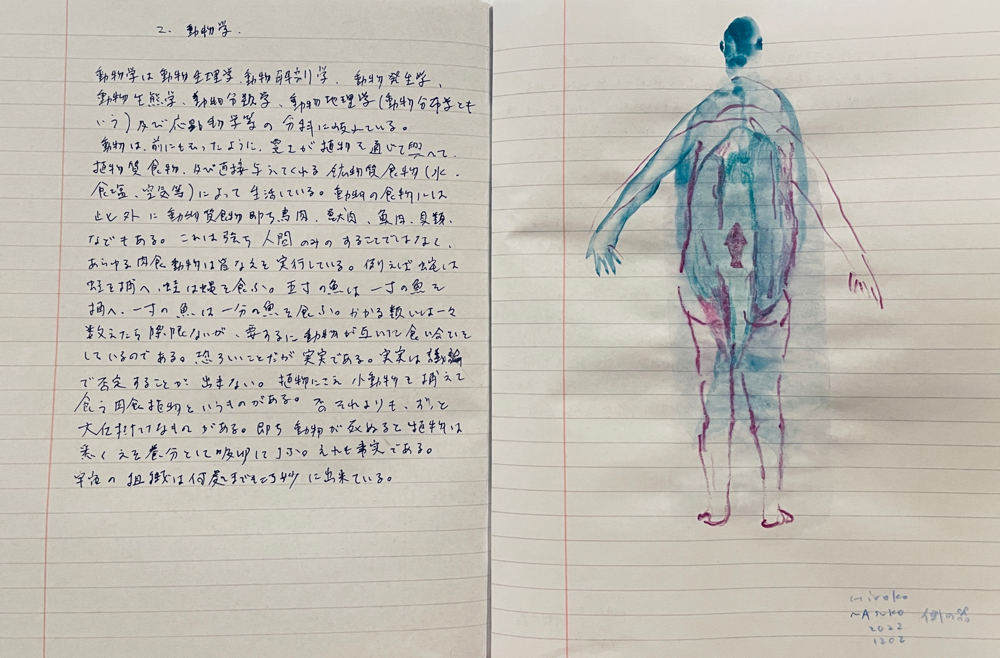 2. 動物学.
動物学は動物生理学、動物解剖学、動物発生学、
動物生態学、動物分類学、動物地理学(動物分布学とも
いう)及び応用動物学等の分科に岐れている。
動物は、前にも云ったように、天が植物を通じて与へて、
植物質食物、及び直接与えてくれる鉱物質食物(水、
食塩、空気等)によって生活している。動物の食物には
此と外に動物質食物即ち鳥肉、獣肉、魚肉、貝類、
などもある。これは強ち人間のみのすることではなく、
あらゆる肉食動物は皆なえを実行している。例えば蛇は
蛙を捕へ、蛙は蝿を食ふ。五寸の魚は一寸の魚を
捕へ、一寸の魚は一分の魚を食ふ。かかる類いは一々
数えたら際限ないが、要するに動物が互いに食い合いを
しているのである。恐ろしいことだが実実である。実実は議論
で否定することが出来ない。植物にさえ小動物を捕えて
食う肉食植物というものがある。否それよりも、ずっと
大仕掛けなものがある。即ち動物が死ぬると植物は
悉くえを養分として吸収して了ふ。えれも事実である。
宇宙の組織は何処までも巧妙に出来ている。
Hiroko
2022
1202